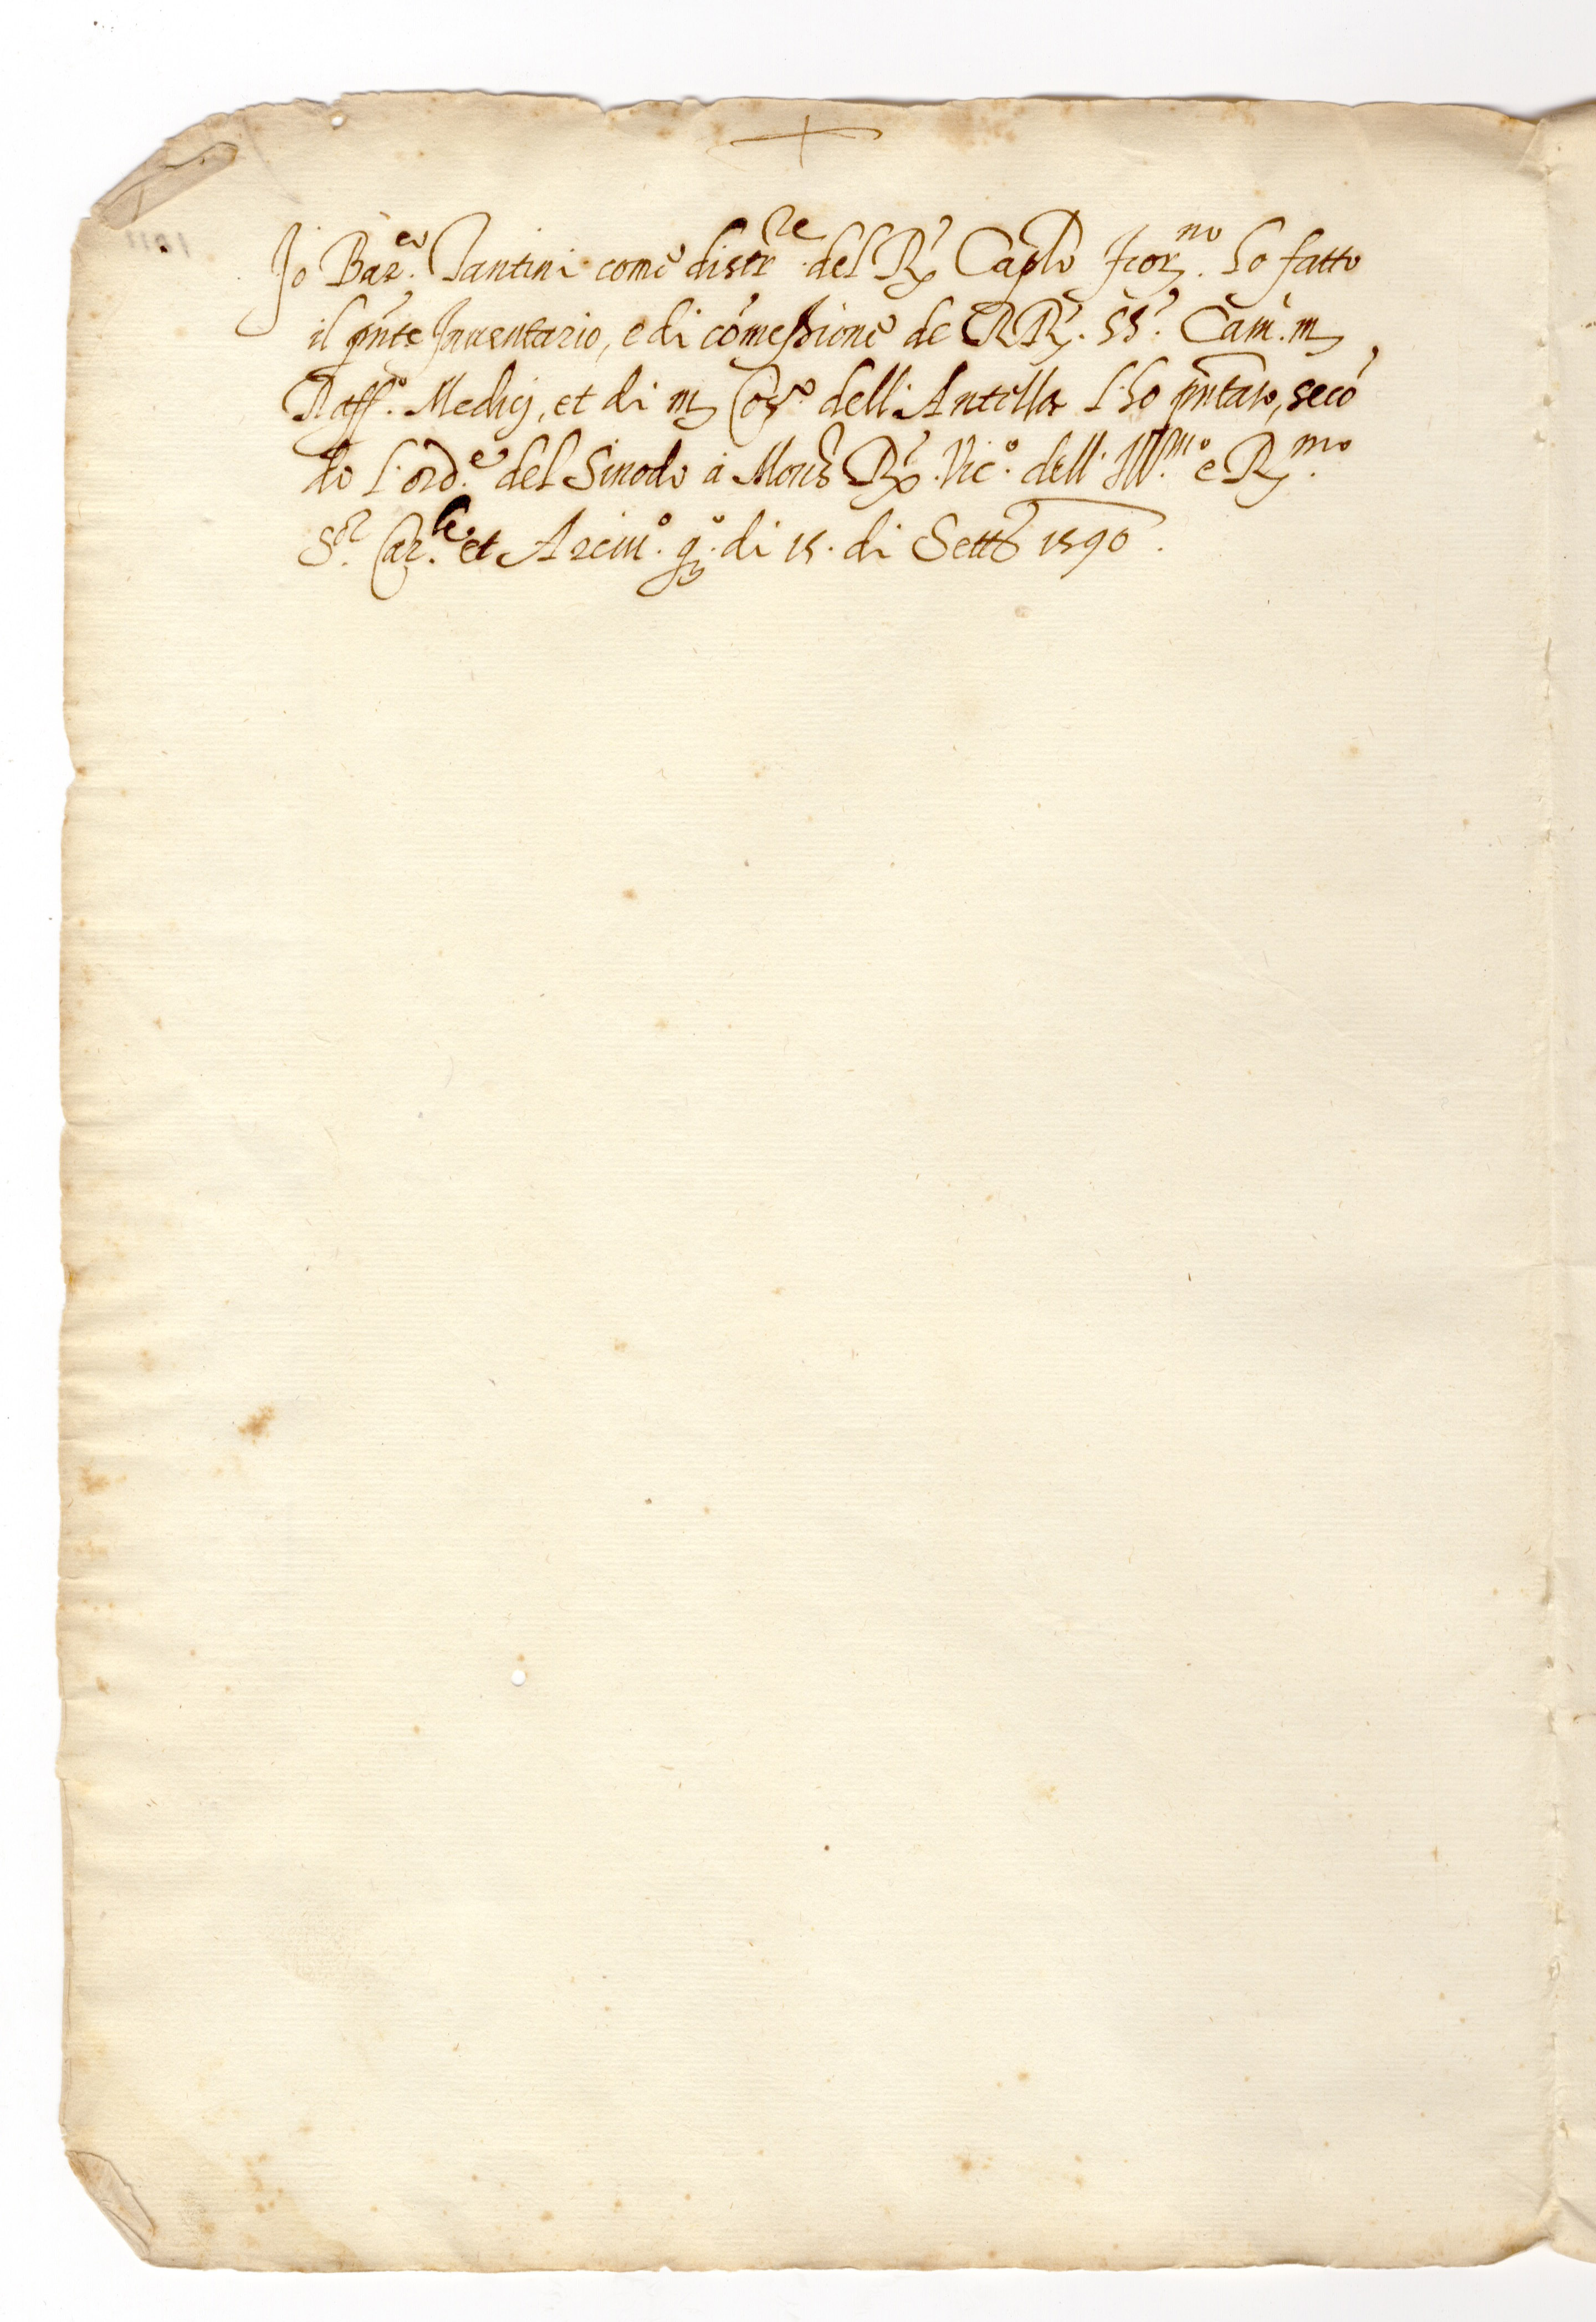 +
Jo Bar.eo Santini come distr.re del R.do Caplo Fior.no ho fatto
il pnte Inventario, e di cómessione de RR.di SS.ri Cam. m
Raff.o Medicj, et di m Cos.o dell'Antella l'ho pntato, secó
do l'ord.e del Sinodo à Mons.r R.do Vic.o dell'Ill.mo e R.mo
S.r Car.le et Arciu.o q.o di 15. di Settb 1590.